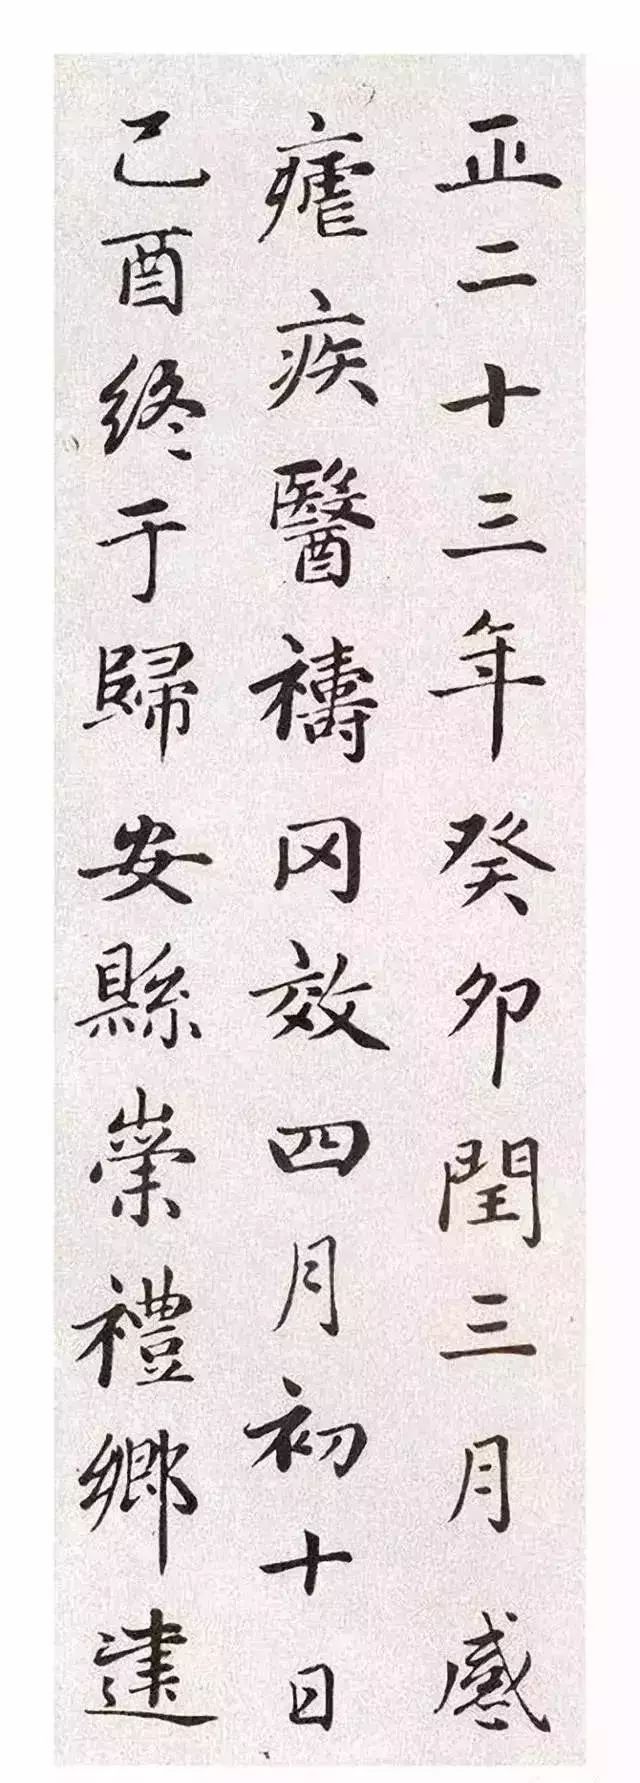 正二十三年癸卯閏三月感
瘧疾醫禱罔效四月初十日
己酉終于歸安縣崇禮鄉建